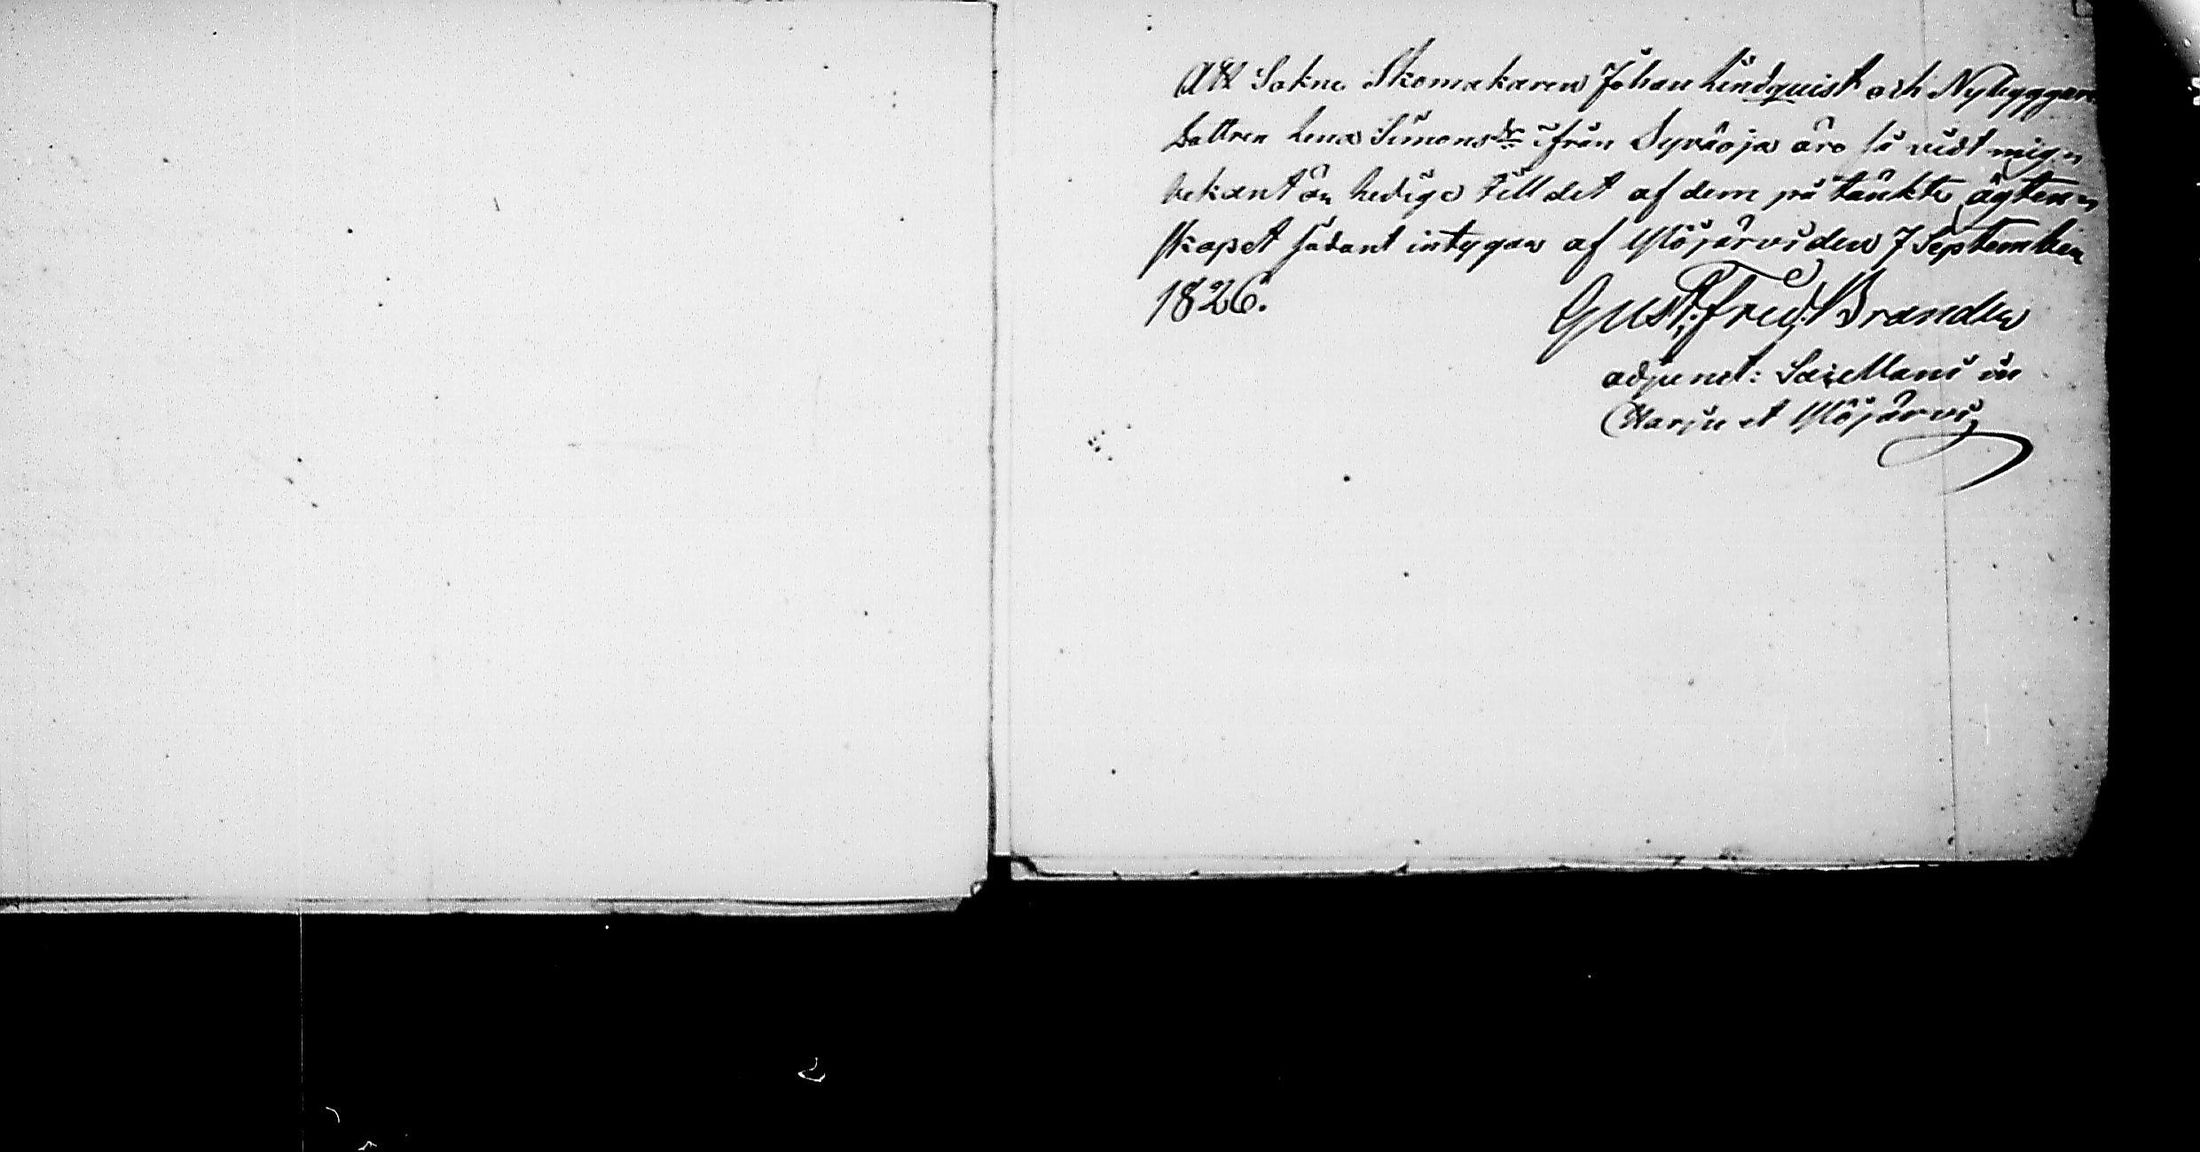 Att Sokne Skomakaren Johan Lindquist och Nybyggare
dottren Lena Simonsdr ifrån Syväoja äro så vidt mig
bekant än ledige till det af dem på tänkte ägten=
skapet sådant intygas af Ylöjärvi den 7 September
1826.
Gust: Fred: Brander
adjunct: Sacellani in
Harju et Ylöjärvi